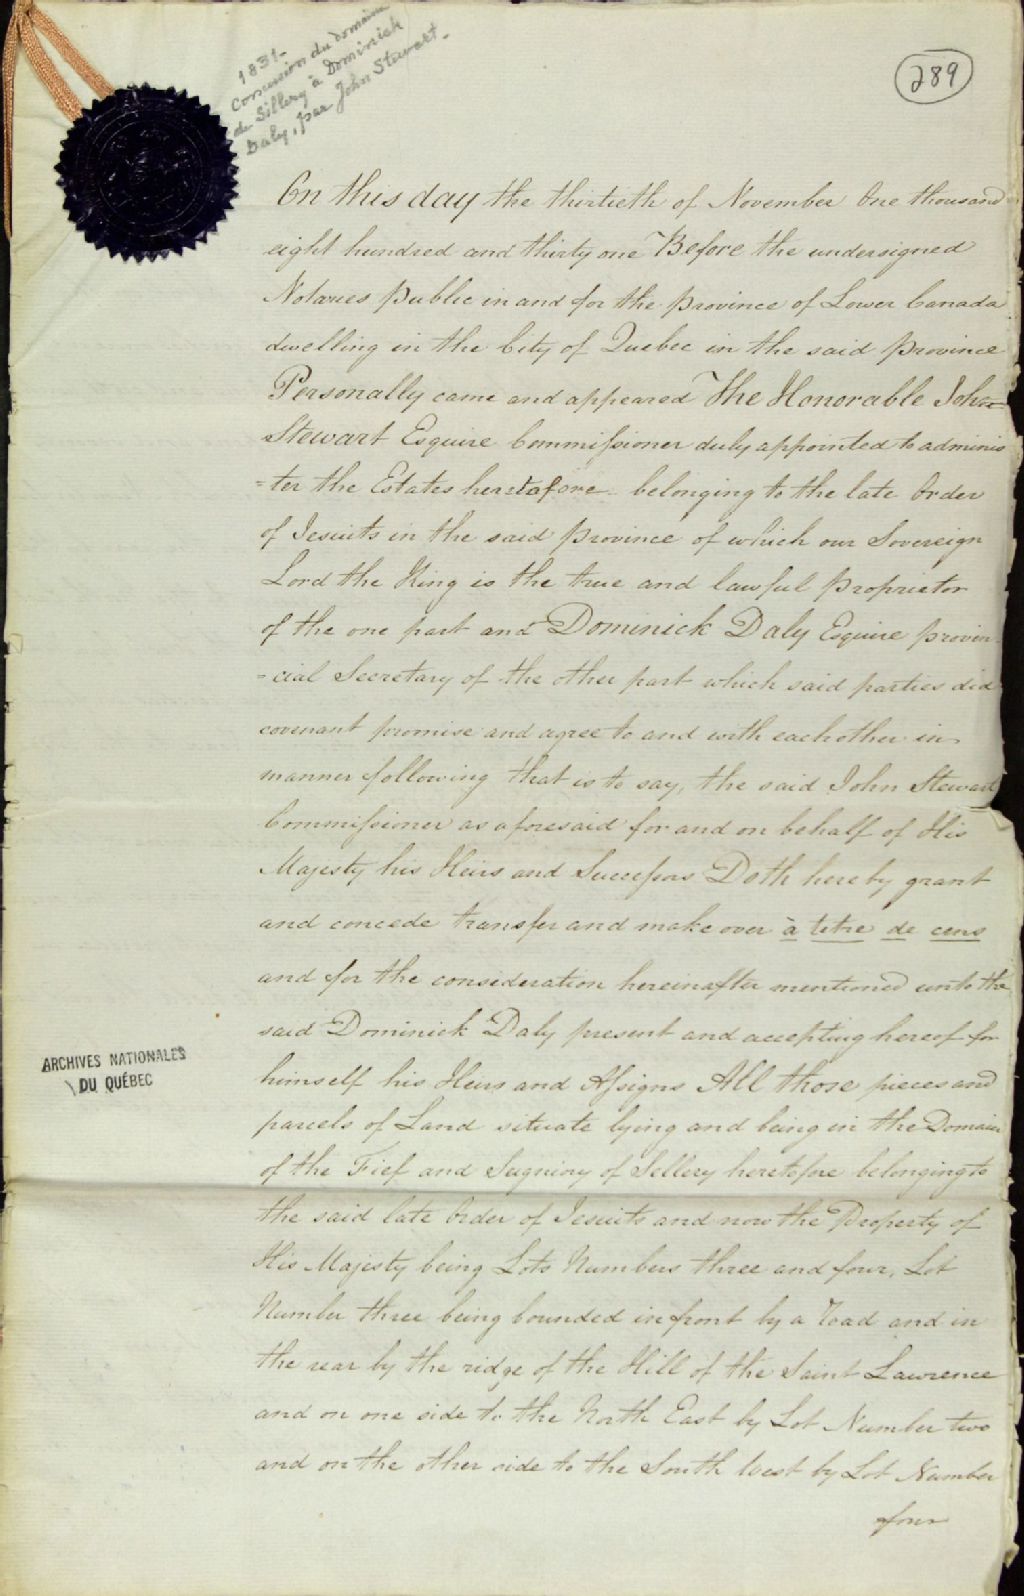 1831-
Concession du domaine
de Sillery à Dominick
Daly, par John Stewart.
289
On this day the thirtieth of November One thousand
eight hundred and thirty one Before the undersigned
Notaries Public in and for the Province of Lower Canada
dwelling in the City of Quebec in the said Province
Personally came and appeared The Honorable John
Stewart Esquire Commissioner duly appointed to adminis
=ter the Estates heretofore belonging to the late Order
of Jesuits in the said Province of which our Sovereign
Lord the King is the true and lawful Proprietor
of the one part and Dominick Daly Esquire Provin
=cial Secretary of the other part which said parties did
covenant promise and agree to and with each other in
manner following that is to say, the said John Stewart
Commissioner as aforesaid for and on behalf of His
Majesty his Heirs and Successors Doth hereby grant
and concede transfer and make over à titre de cens
and for the consideration hereinafter mentioned unto the
said Dominick Daly present and accepting hereof for
himself his Heirs and Assigns All those pieces and
parcels of Land situate lying and being in the Domain
of the Fief and Seigniory of Sillery heretofore belonging to
the said late Order of Jesuits and now the Property of
His Majesty being Lots Numbers three and four, Lot
Number three being bounded in front by a road and in
the rear by the ridge of the Hill of the Saint Lawrence
and on one side to the North East by Lot Number two
and on the other side to the South West by Lot Number
four
ARCHIVES NATIONALES
DU QUÉBEC